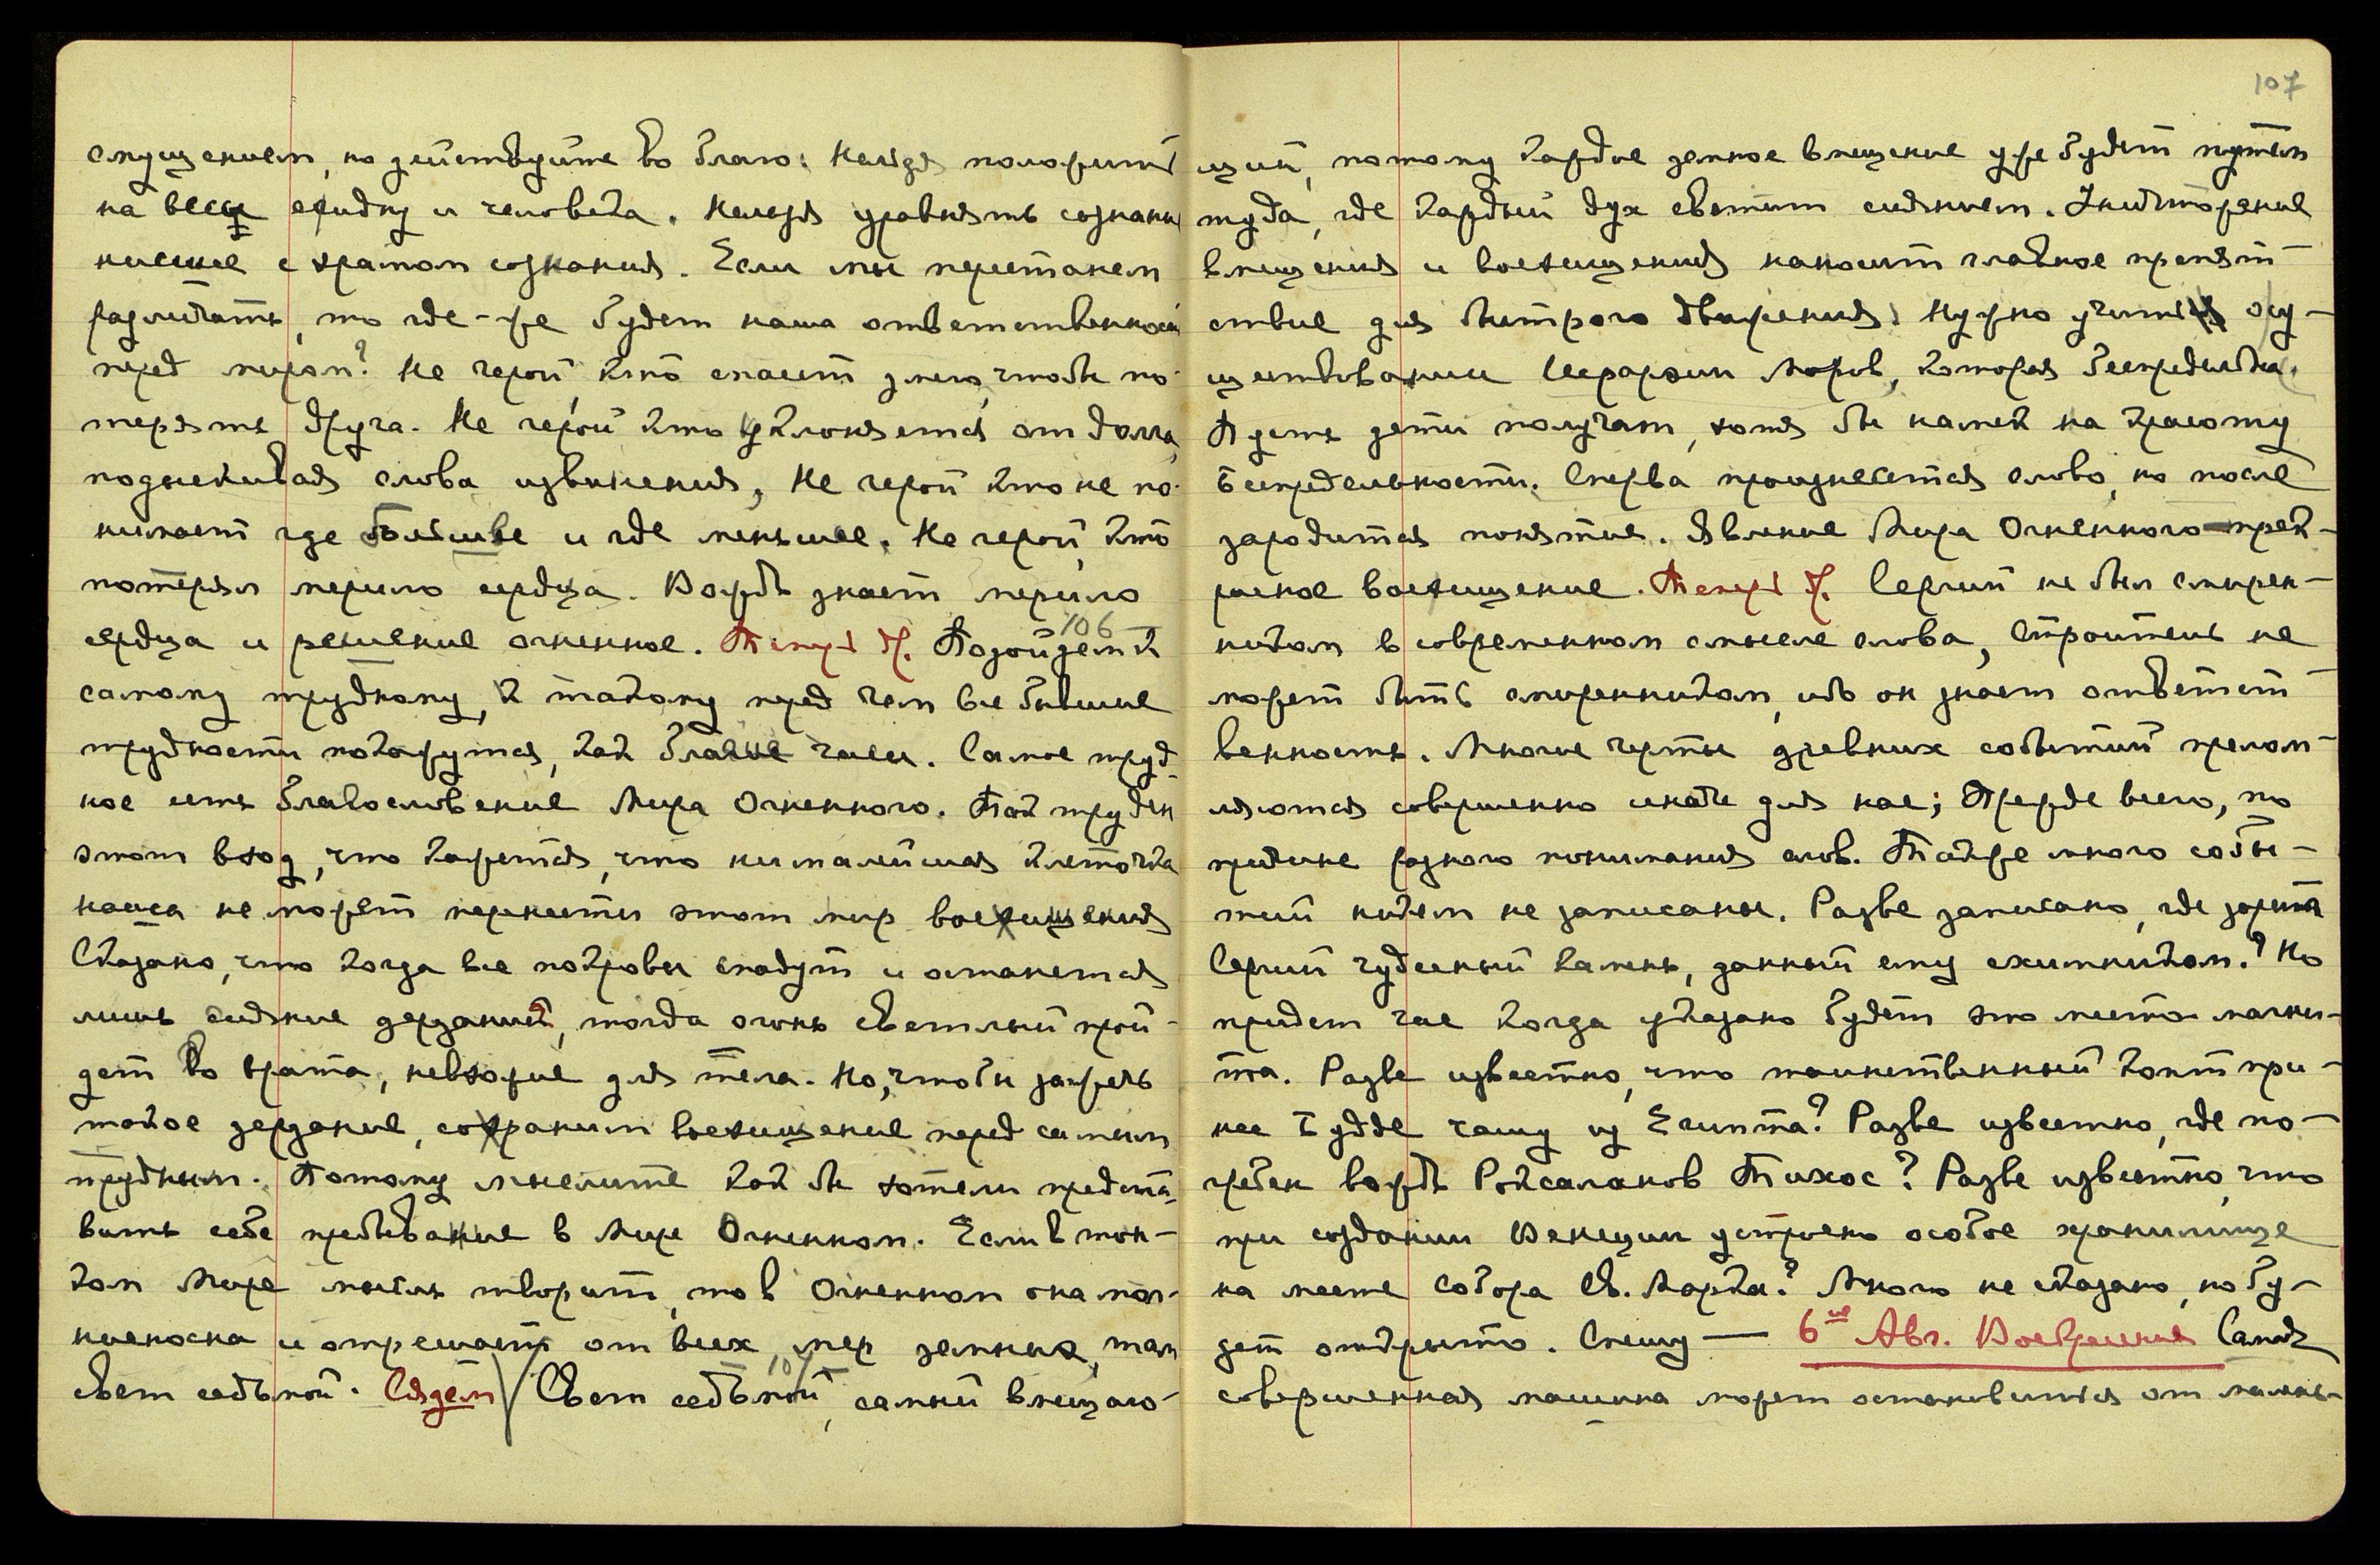 смущением, но действуйте во благо: Нельзя положить
на весы ехидну и человека. Нельзя уравнять сознание
низшее с храмом сознания. Если мы перестанем
различать, то где-же будет наша ответственность
перед миром? Не герой, кто спасет змею, чтобы по-
терять друга. Не герой кто уклоняется от долга,
подыскивая слова извинения, Не герой кто не по-
нимает где большее и где меньшее. Не герой, кто
потерял мерило сердца. Вождь знает мерило
106
сердца и решение огненное. Теперь М. Подойдем к
самому трудному, к такому перед чем все бывшие
трудности покажутся, как благие часы. Самое труд-
ное есть благословение Мира Огненного. Так труден
этот вход, что кажется, что ни малейшая клеточка
наша не может перенести этот мир восхищения
Сказано, что когда все покровы спадут и останется
лишь сияние дерзаний, тогда огонь светлый прой-
дет во врата, невхожие для тела. Но, чтобы зажечь
такое дерзание, сохраним восхищение перед самым
трудным. Потому мыслите как бы хотели предста-
вить себе пребывание в Мире Огненном. Если в тон-
ком Мире мысль творит, то в Огненном она мол-
ниеносна и отрешает от всех мер земных, там
107
свет седьмой. Сядем Свет седьмой, самый вмещаю-
107
щий, потому каждое земное вмещение уже будет путем
туда, где каждый дух светит сиянием. Уничтожение
вмещения и восхищения наносит главное препят-
ствие для быстрого движения. Нужно учить осу-
ществлении Иерархии Миров, которая беспредельна.
Пусть дети получат, хотя бы намек на красоту
Беспредельности. Сперва произнесется слово, но после
зародится понятие. Явление Мира Огненного прек-
расное восхищение. Теперь М. Сергий не был смирен-
ником в современном смысле слова, Строитель не
может быть смиренником, ибо он знает ответст-
венность. Многие черты древних событий прелом-
ляются совершенно иначе для нас; Прежде всего, по
причине разного понимания слов. Также много собы-
тий никем не записаны. Разве записано, где зарыл
Сергий чудесный камень, данный ему схимником? Но
придет час когда указано будет это место магни-
та. Разве известно, что таинственный копт при-
нес Будде чашу из Египта? Разве известно, где по-
гребен вождь Роксаланов Тихос? Разве известно, что
при создании Венеции устроено особое хранилище
на месте Собора Св. Марка? Много не сказано, но бу-
дет открыто. Спешу — 6ое Авг. Воскресенье Самая
совершенная машина может остановиться от малень-